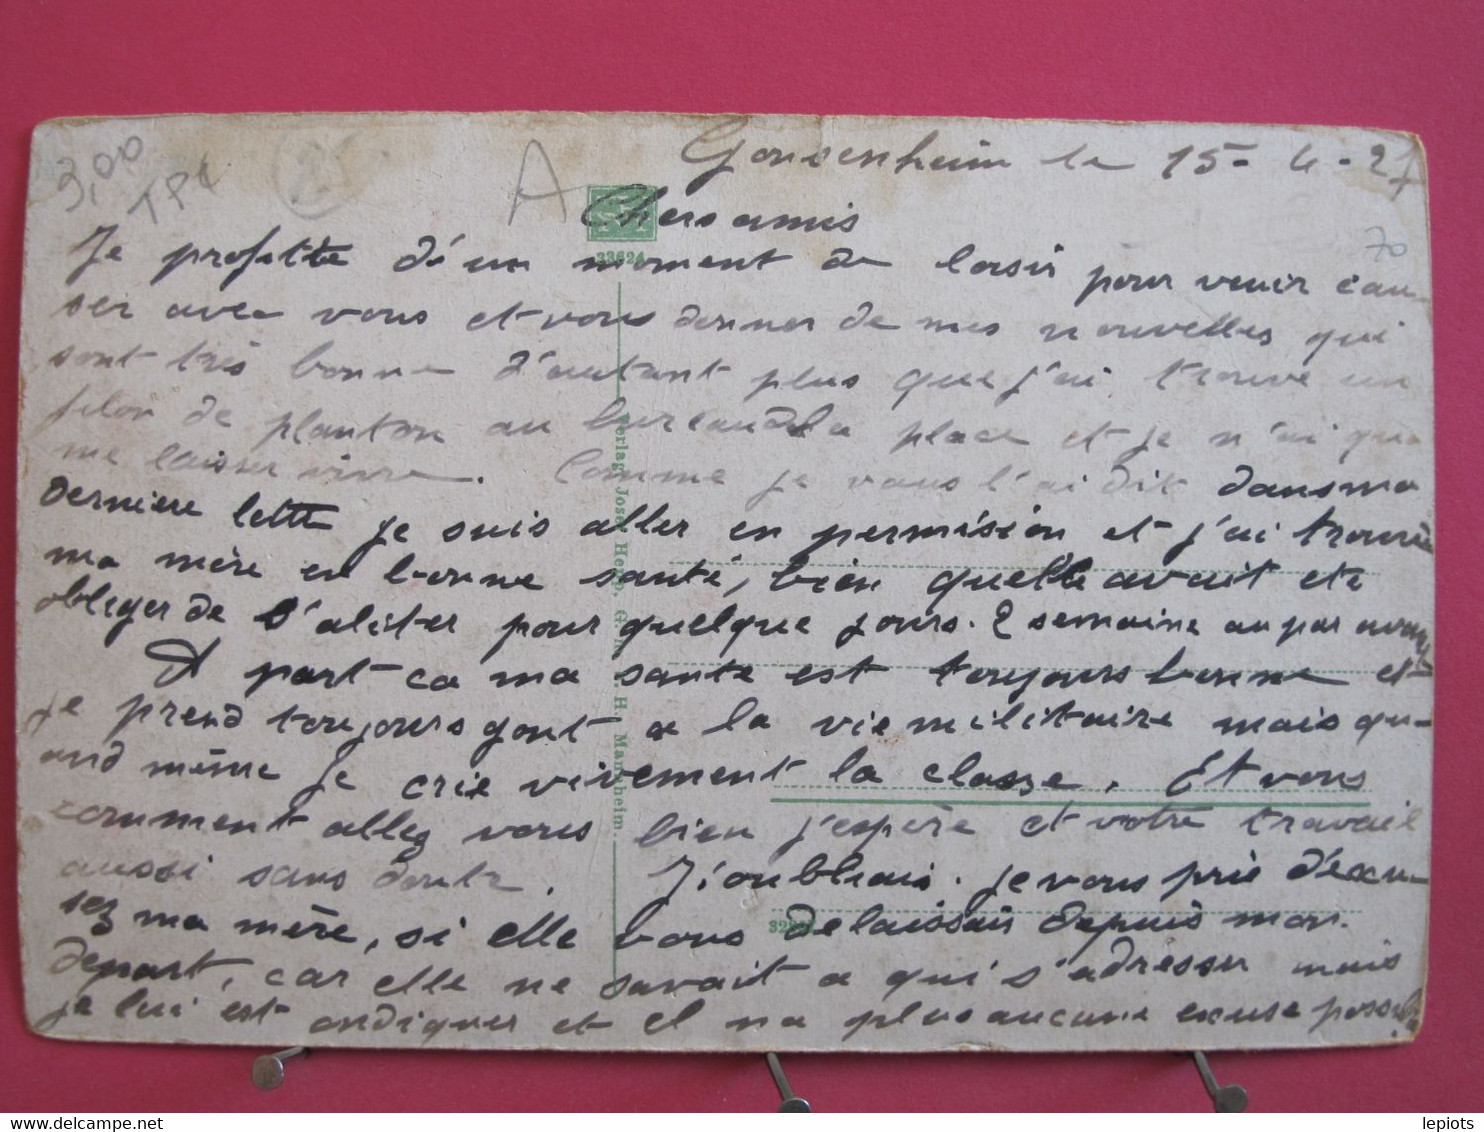 3,00
TPC
25
A
Gonsenheim le 15-4-27
70
Chers amis
33624
Je profitte d'un moment de loisir pour venir cau-
ser avec vous et vous donner de mes nouvelles qui
sont très bonne d'autant plus que j'ai trouvé un
filon de planton au bureau de la place et je n'ai qua
me laisser vivre. Comme je vous l'ai dit dans ma
dernière lettre je suis aller en permision et j'ai trouvé
ma mère en bonne santé, bien quelle avait ete
obliger de s'aliter pour quelque jours. 2 semaine au par avant
A part ca ma sante est toujours bonne et
je prend toujours gout a la vie militaire mais qu-
and même je crie vivement la classe. Et vous
comment allez vous bien j'espère et votre travail
aussi sans doute. J'oubliais. je vous pris d'excu-
sez ma mère, si elle vous delaissais depuis mon
depart, car elle ne savait a qui s'adresser mais
je lui est indiquer et il n'a plus aucune excuse possible
Verlag Josef Heino, G. H. Mannheim.